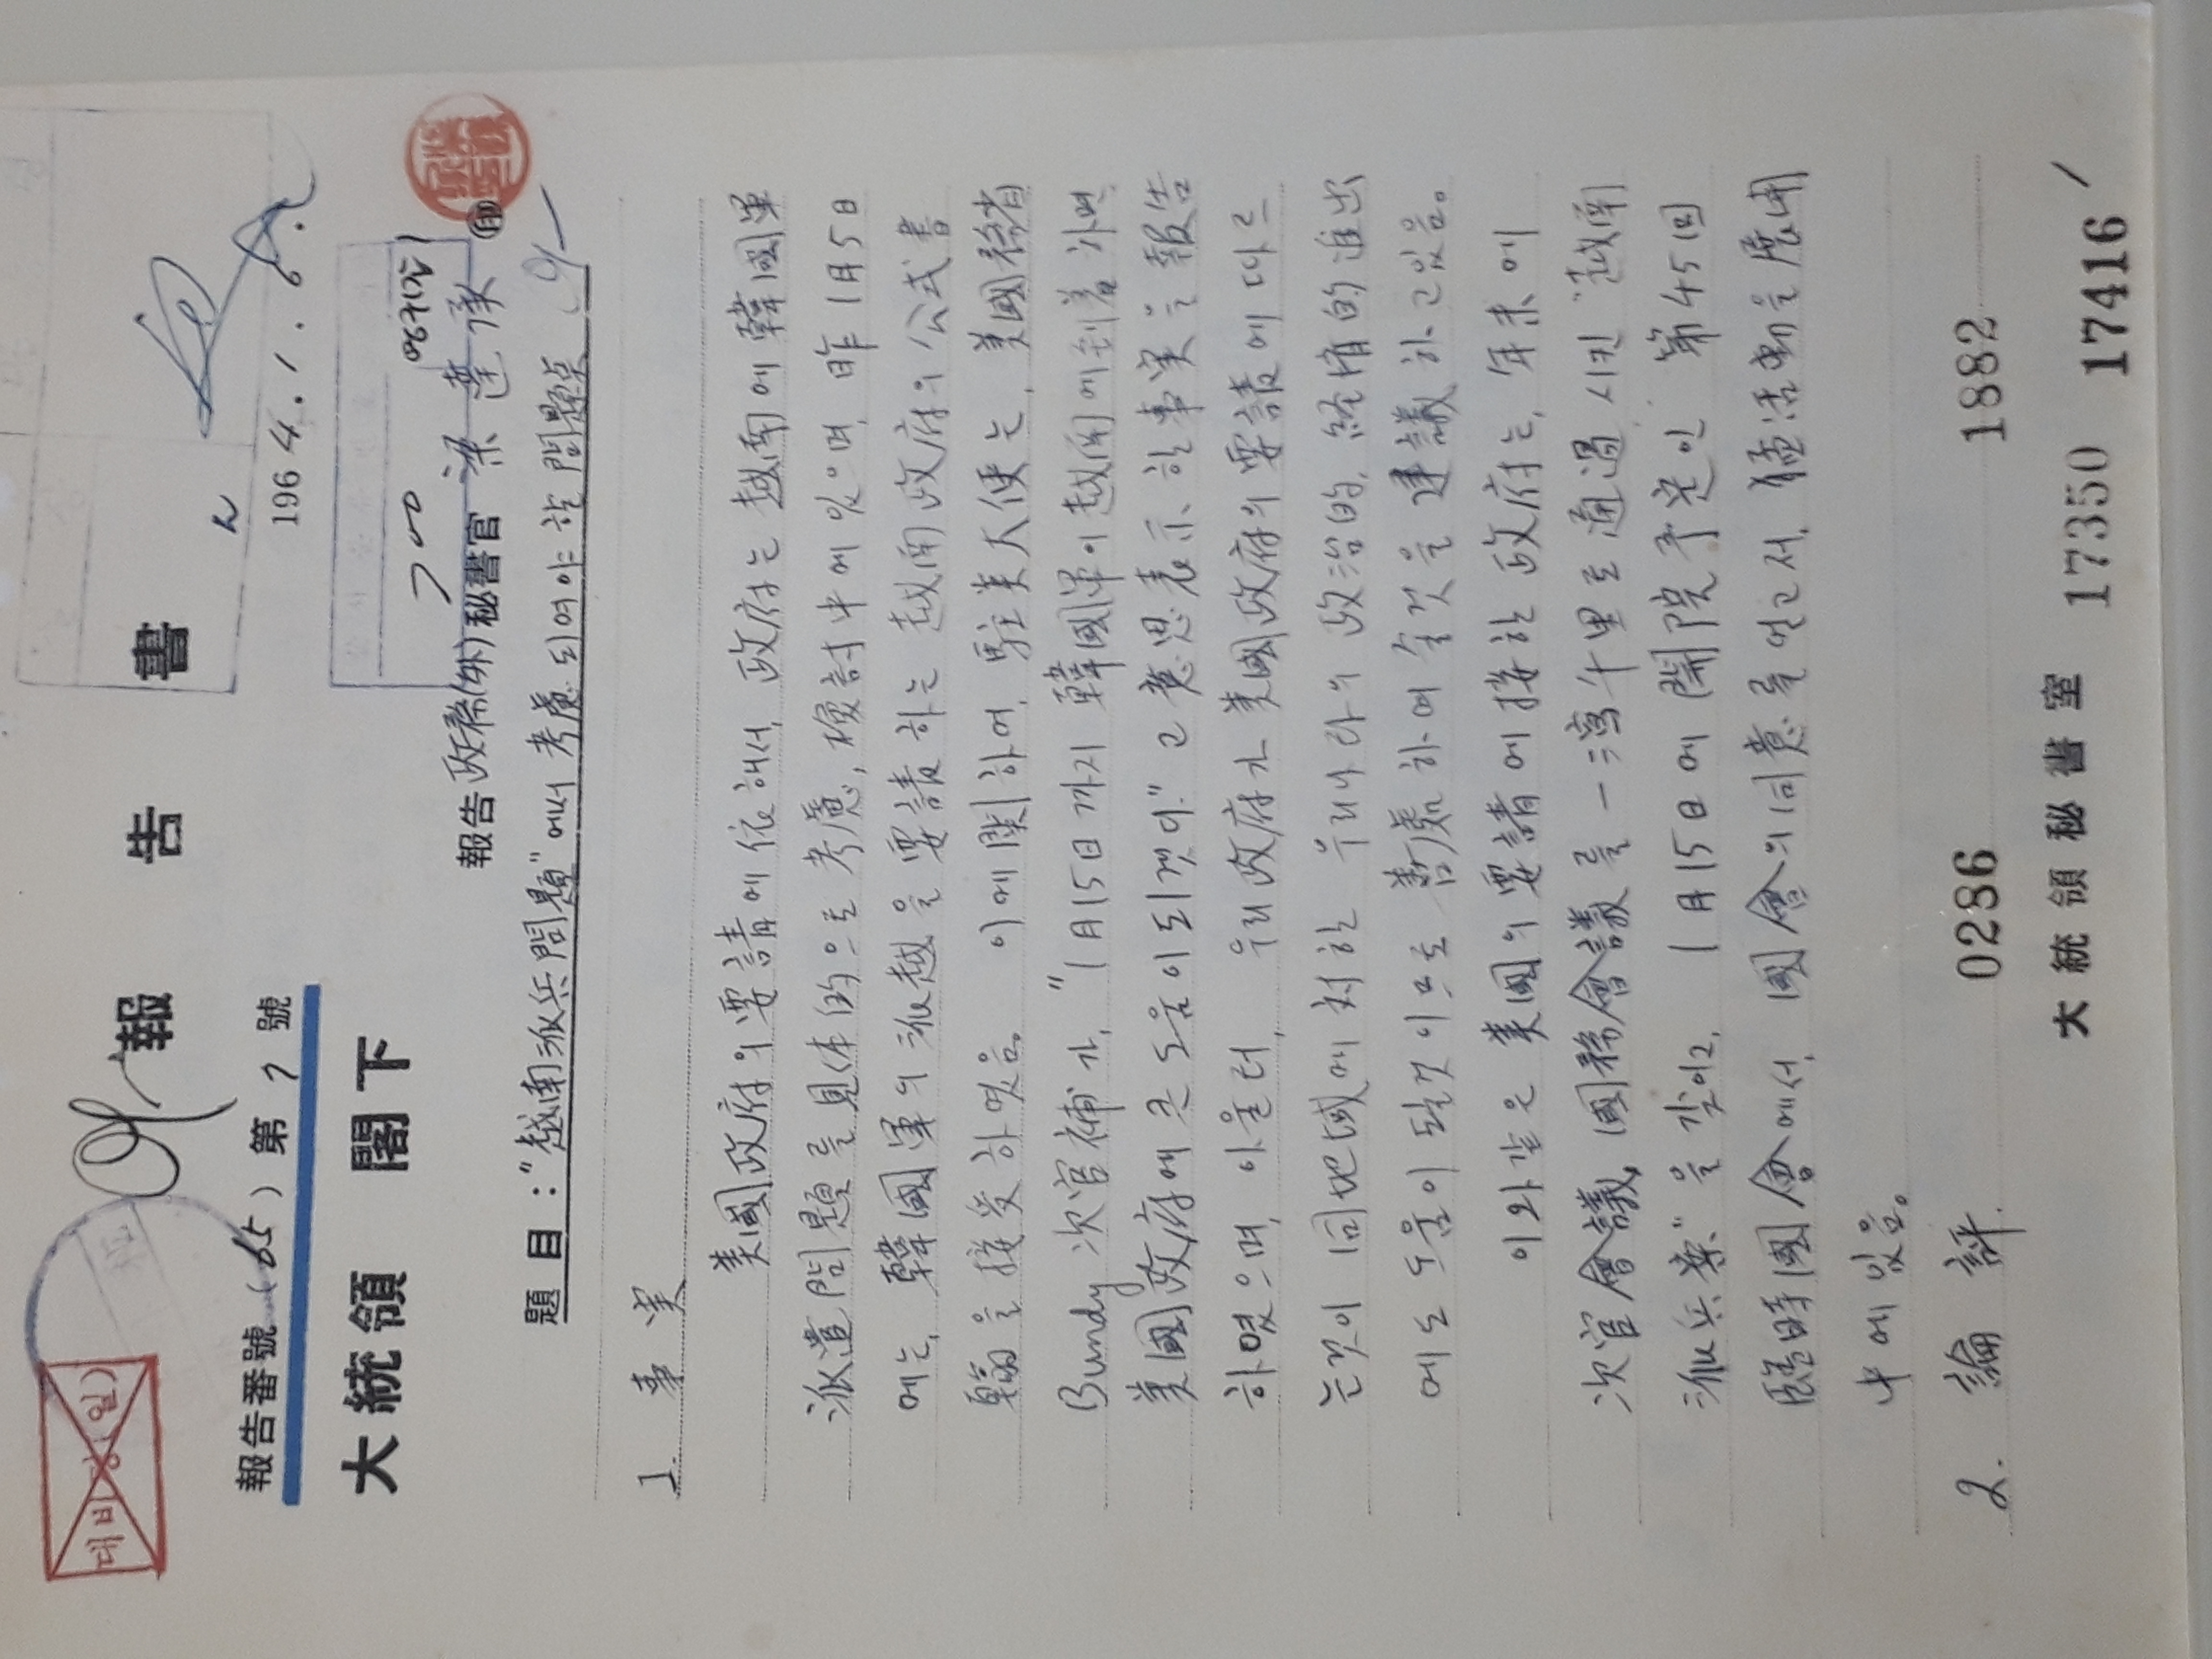 대비망(일)
報告書
報告番號 (65) 第 7 號
1964. 1. 6.
大統領 閣下
報告 政務(外) 秘書官 梁達承
題目 : "越南派兵問題"에써 考慮되여야 할 問題点
1. 事実
美國政府의 要請에 依해서, 政府는 越南에 韓國軍
派遣問題를 具体的으로 考慮, 檢討中에 있으며, 昨 1月5日
에는, 韓國軍의 派越을 要請하는 越南政府의 公式書
翰을 接受하였음. 이에 関하여, 駐美大使는, 美國務省
Bundy 次官補가, "1月15日까지 韓國軍이 越南에 到着하면
美國政府에 큰 도움이 되겠다." 고 意思表示한 事実을 報告
하였으며, 아울러, 우리政府가 美國政府의 要請에 따르
는것이 同地域에 対한 우리나라의 政治的, 経済的 進出
에도 도움이 될것이므로 善處하여 줄것을 建議하고있음.
이와같은 美國의 要請에 接한 政府는, 年末에
次官會議, 國務會議를 一瀉千里로 通過시킨 "越南
派兵案"을 갖이고, 1月15日에 開院予定인 第45回
臨時國會에서, 國會의 同意를 얻고저, 猛活動을 展開
中에 있음.
2. 論評.
0286 1882
大統領秘書室 17350 17416